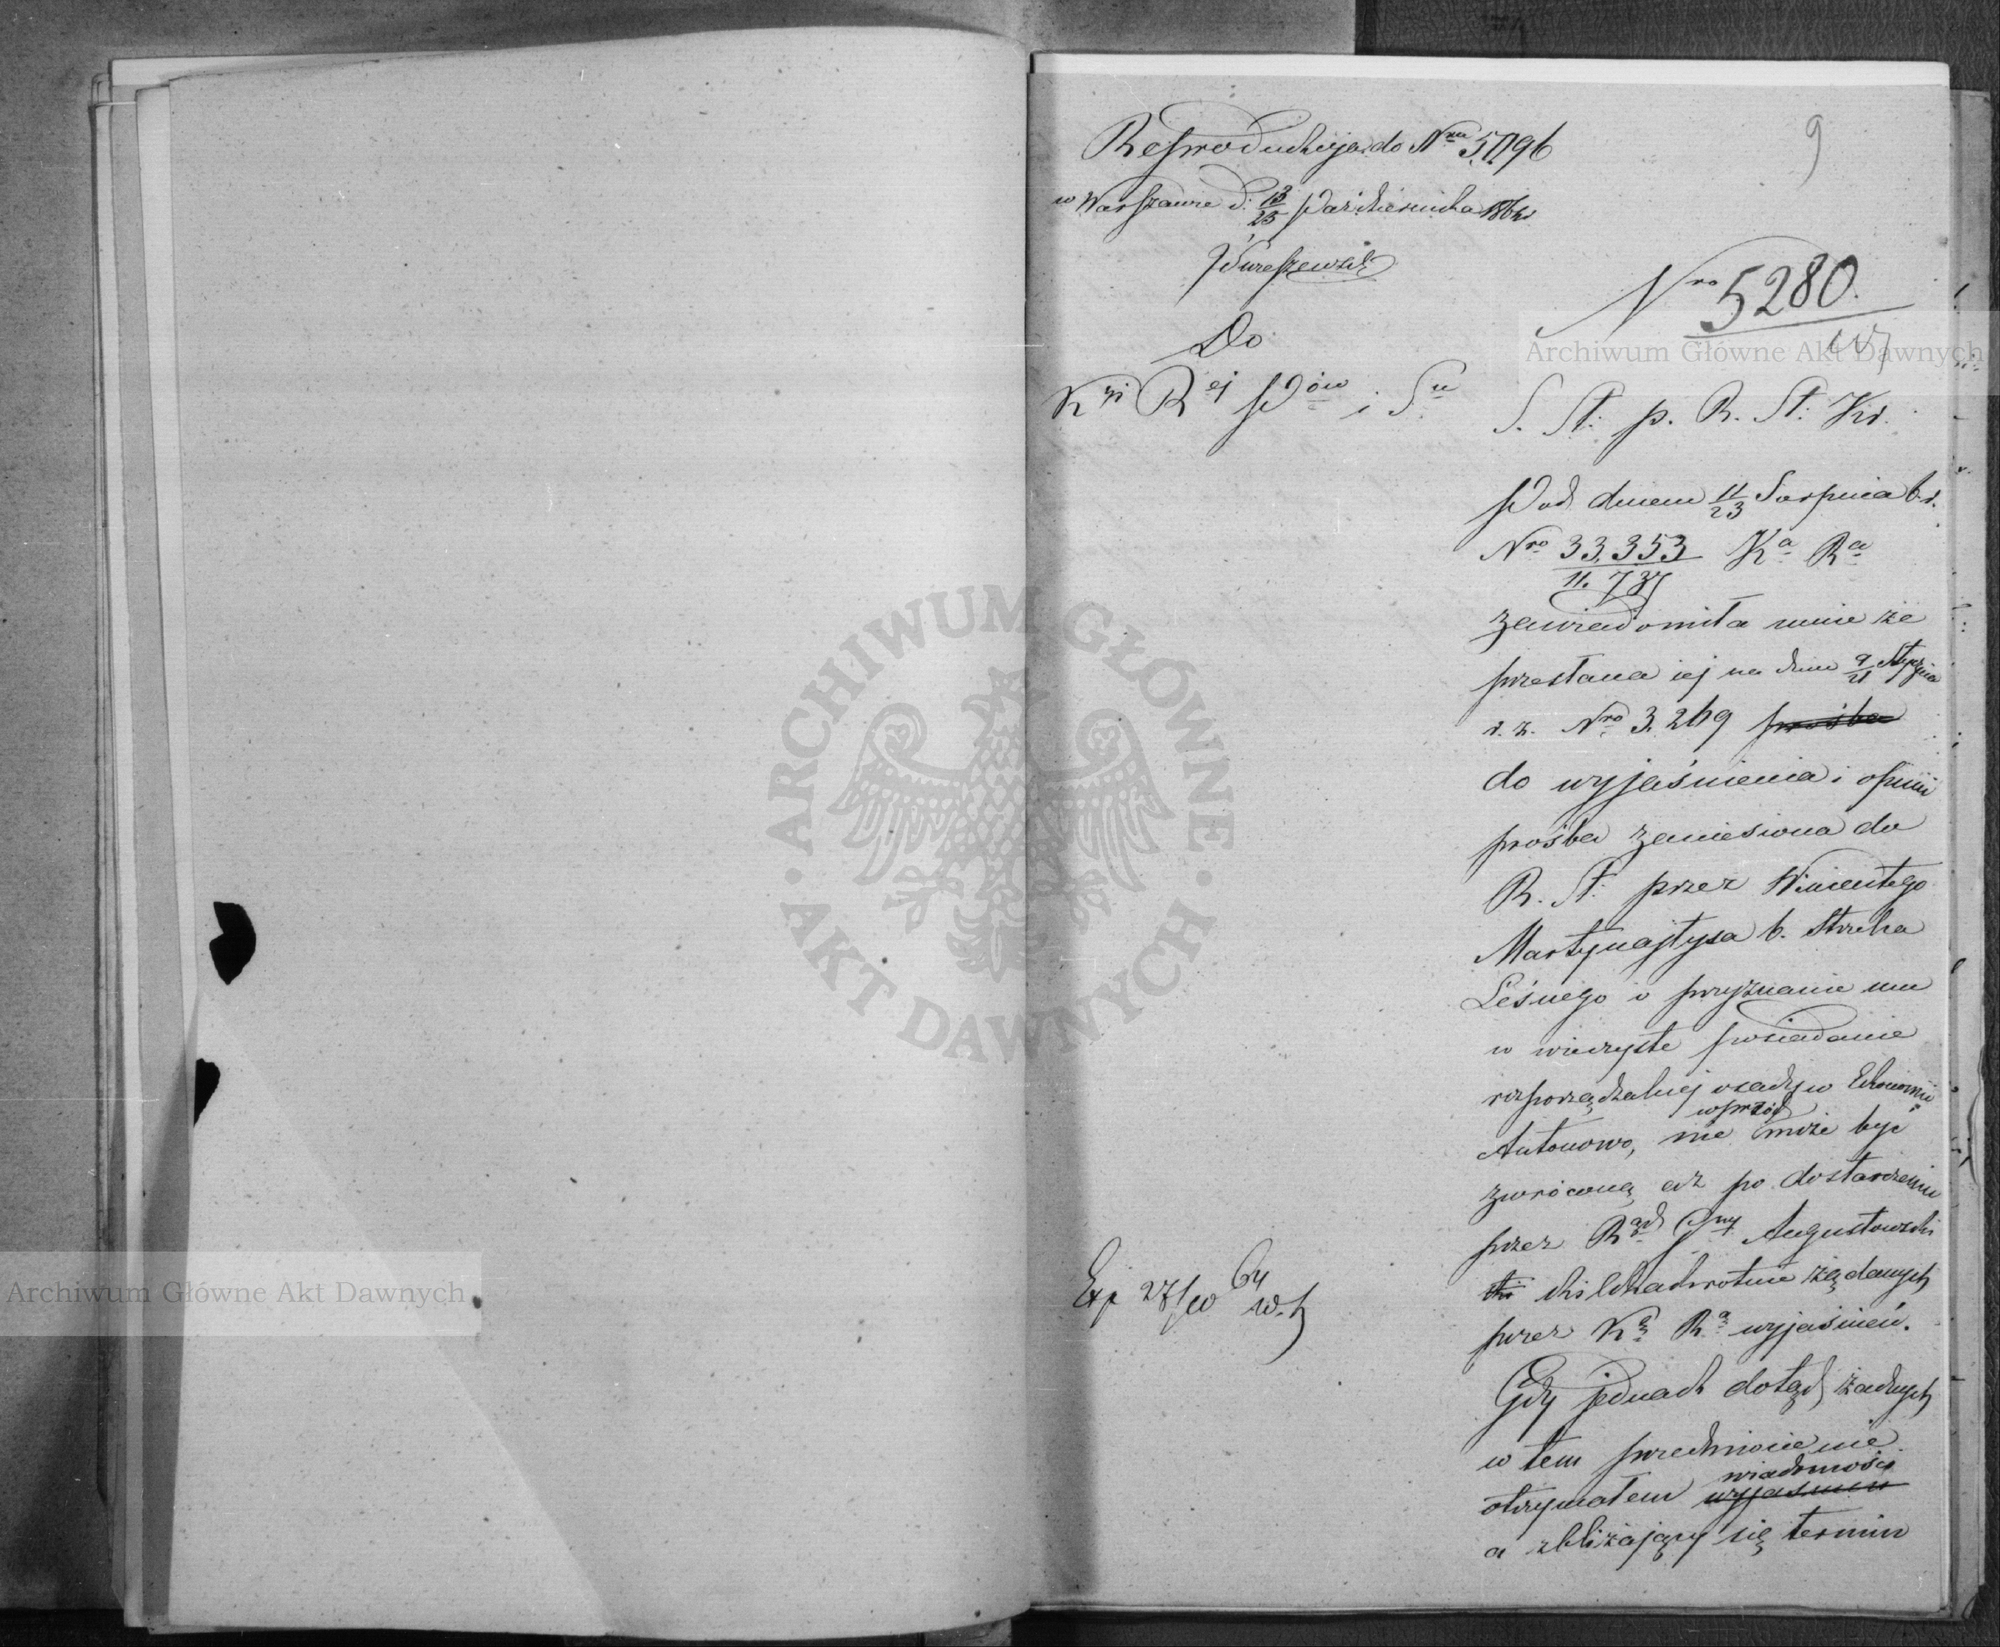 Reprodukcyja do Nru 5,096
w Warszawie d. 13/25 Października 1864 r.
Do
Kyi Rej Pów i Su
9
Nro 5280.
S. St. p. R. St. Kr.
Pod dniem 11/23 Sierpnia b. r.
Nro 33,353/11.737 Ka Ra
zawiadomiła mnie że
przesłana jej na dniu 9/21 Stycznia
r. z. Nro 3,269 prośba
do wyjaśnienia i opinii
prośba zaniesiona do
R. St. przez Wincentego
Martynajtysa b. Strzelca
Leśnego o przyznanie mu
w wieczyste posiadanie
rozporządzalnej osady w Ekonomii
Antonowo, nie wprzód może być
zwróconą aż po dostarczeniu
przez Rząd Gny Augustowski
kilkakrotnie żądanych
przez Kę Rą wyjaśnień.
Gdy jednak dotąd żadnych
w tem przedmiocie nie
otrzymałem wyjaśnień wiadomości
a zbliżający się termin
Exp 27/10 64
Archiwum Główne Akt Dawnych
Archiwum Główne Akt Dawnych
ARCHIWUM GŁÓWNE · AKT DAWNYCH ·